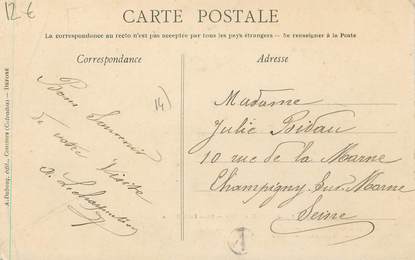 12€
CARTE POSTALE
La correspondance au recto n'est pas acceptée par tous les pays étrangers — Se renseigner à la Poste
Correspondance
Adresse
14
Bon Souvenir
de votre Visite
A. Lecharpentier
Madame
Julie Bidau
10 rue de la Marne
Champigny Sur Marne
Seine
1
A. Dubosq, édit., Courseulles (Calvados) — DÉPOSÉ